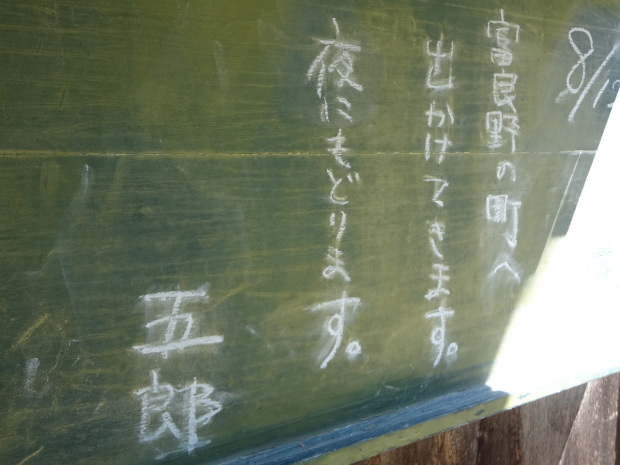 8/1
富良野の町へ
出かけてきます。
夜にもどります。
五郎